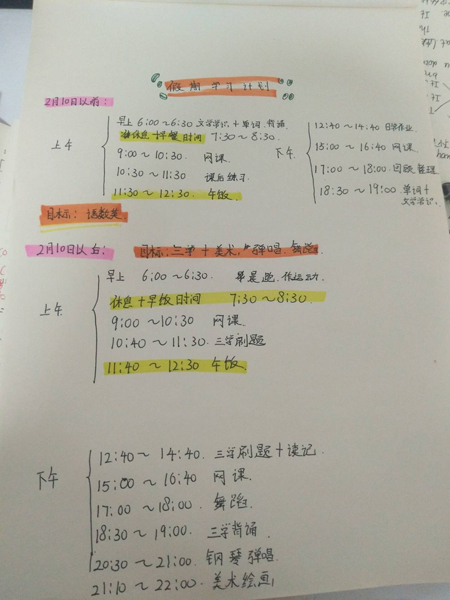 假期学习计划
2月10日以前:
上午
早上 6:00~6:30 文学常识+单词.背诵
休息+早餐时间 7:30~8:30.
9:00~10:30. 网课.
10:30~11:30 课后练习.
11:30~12:30. 午饭
下午
12:40~14:40 日常作业.
15:00~16:40 网课.
17:00~18:00. 回顾整理
18:30~19:00 单词+
文学常识.
目标: 语数英
2月10日以后:
目标:三学+美术,弹唱,舞蹈.
上午
早上 6:00~6:30.
休息+早饭时间 7:30~8:30
9:00~10:30 网课
10:40~11:30. 三学刷题
11:40~12:30 午饭
下午
12:40~14:40. 三学刷题+读记.
15:00~16:40 网课.
17:00~18:00. 舞蹈.
18:30~19:00. 三学背诵
20:30~21:00 钢琴弹唱.
21:10~22:00. 美术绘画